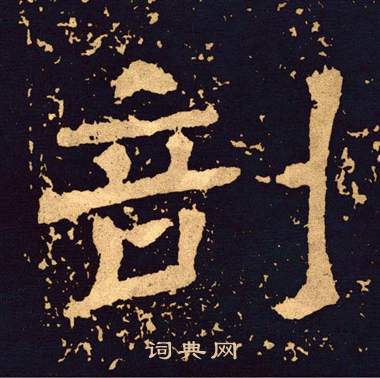 剖
词典网